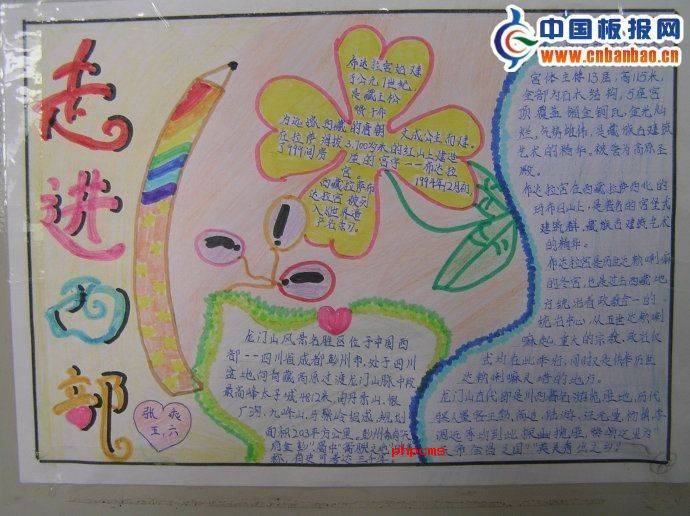 中国板报网
www.cnbanbao.cn
走进西部
张
五,六
布达拉宫始建
于公元7世纪,
是藏王松
赞干布
为远嫁西藏的唐朝
文成公主而建。
在拉萨海拔3,700多米的红山上建造
了999间房
屋的宫宇——布达拉
宫。
1994年12月布
西藏拉萨布
达拉宫被列
入世界遗
龙门山风景名胜区位于中国西
部--四川省成都彭州市,处于四川
盆地向青藏高原过渡龙门山脉中段
最高峰太子城4812米,由丹景山、银
厂沟、九峰山、
组成,规划
面积203平方公里。彭州
宫体主楼13层,高115米,
全部为石木结构,5座宫
顶覆盖镏金铜瓦,金光灿
烂,气势雄伟,是藏式建筑
艺术的精华。被誉为高原圣
殿。
布达拉宫在西藏拉萨西北的
玛布日山上,是著名的宫堡式
建筑群,藏族古建筑艺术
的精华。
布达拉宫是历达赖喇嘛
的冬宫,也是过去西藏地
方统治者政教合一的
统治中心,从五世达赖喇
嘛起,重大的宗教、政治仪
式均在此举行,同时又是供奉历世
达赖喇嘛灵塔的地方。
龙门山古代即是川西著名游览胜地,历代
phpcms